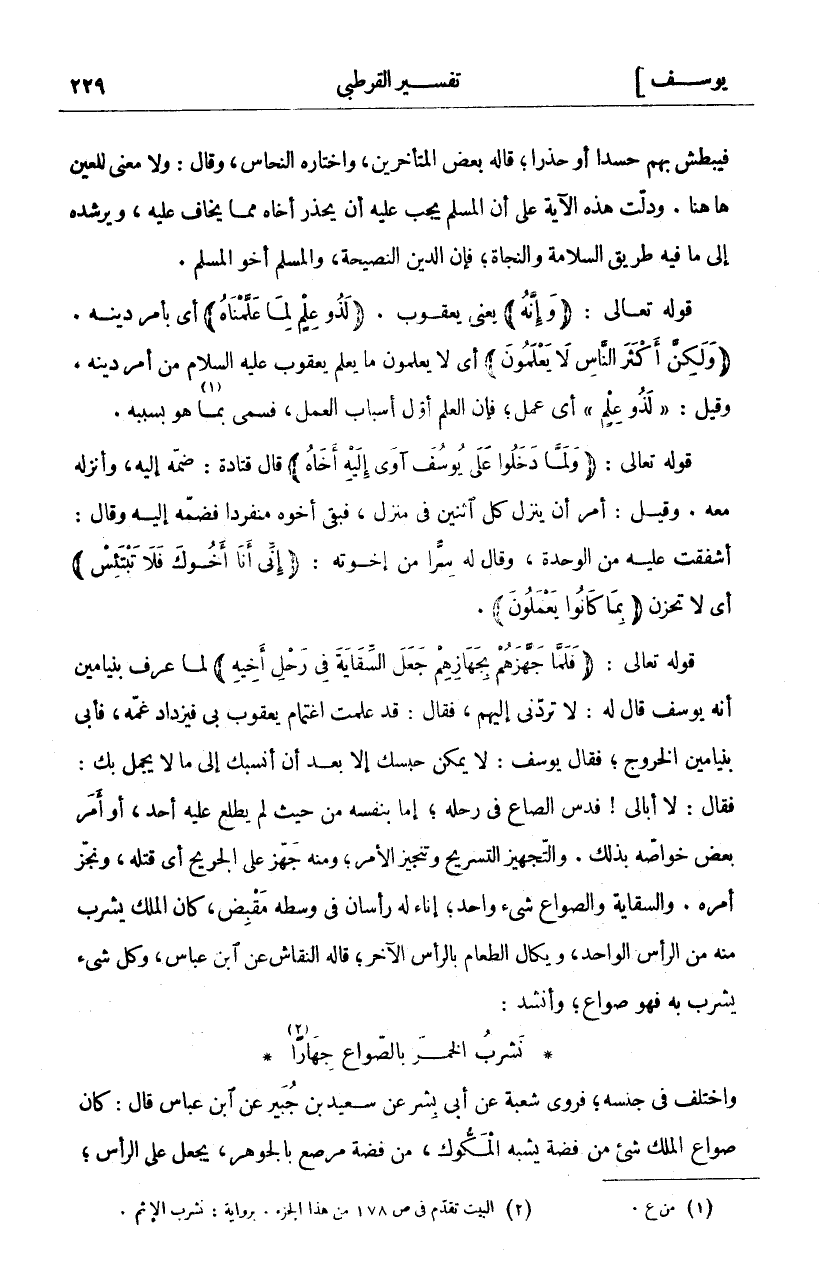 يوسف ] تفسير القرطبي ٢٢٩
فيبطش بهم حسدا أو حذرا؛ قاله بعض المتأخرين، واختاره النحاس، وقال : ولا معنى للعين
ها هنا . ودلّت هذه الآية على أن المسلم يجب عليه أن يحذر أخاه مما يخاف عليه ، ويرشده
إلى ما فيه طريق السلامة والنجاة؛ فإن الدين النصيحة، والمسلم أخو المسلم .
قوله تعالى : ﴿وَإِنَّهُ﴾ يعنى يعقوب . ﴿لَذُو عِلْمٍ لِمَا عَلَّمْنَاهُ﴾ أى بأمر دينه .
﴿وَلَكِنَّ أَكْثَرَ النَّاسِ لَا يَعْلَمُونَ﴾ أى لا يعلمون ما يعلم يعقوب عليه السلام من أمر دينه .
وقيل : « لَذُو عِلْمٍ » أى عمل؛ فإن العلم أوّل أسباب العمل، فسمى بما (١) هو بسببه .
قوله تعالى : ﴿وَلَمَّا دَخَلُوا عَلَى يُوسُفَ آوَى إِلَيْهِ أَخَاهُ﴾ قال قتادة : ضمّه إليه، وأنزله
معه . وقيل : أمر أن ينزل كل آثنين فى منزل ، فبقى أخوه منفردا فضمّه إليه وقال :
أشفقت عليه من الوحدة ، وقال له سِرًّا من إخوته : ﴿إِنِّى أَنَا أَخُوكَ فَلَا تَبْتَئِسْ﴾
أى لا تحزن ﴿بِمَا كَانُوا يَعْمَلُونَ﴾ .
قوله تعالى : ﴿فَلَمَّا جَهَّزَهُمْ بِجَهَازِهِمْ جَعَلَ السِّقَايَةَ فِى رَحْلِ أَخِيهِ﴾ لما عرف بنيامين
أنه يوسف قال له : لا تردّنى إليهم ، فقال : قد علمت اغتمام يعقوب بى فيزداد غمّه ، فأبى
بنيامين الخروج ؛ فقال يوسف : لا يمكن حبسك إلا بعد أن أنسبك إلى ما لا يجمل بك :
فقال : لا أبالى ! فدس الصاع فى رحله ؛ إما بنفسه من حيث لم يطلع عليه أحد ، أو أَمَر
بعض خواصّه بذلك . والتّجهيز التسريح وتنجيز الأمر؛ ومنه جَهّز على الجريح أى قتله ، ونجّز
أمره . والسقاية والصواع شىء واحد؛ إناء له رأسان فى وسطه مَقْبِض، كان الملك يشرب
منه من الرأس الواحد، ويكال الطعام بالرأس الآخر؛ قاله النقاش عن آبن عباس، وكل شىء
يشرب به فهو صواع؛ وأنشد :
* نَشربُ الخمرَ بالصّواعِ جِهَارًا (٢) *
واختلف فى جنسه؛ فروى شعبة عن أبى بِشر عن سعيد بن جُبَير عن آبن عباس قال : كان
صواع الملك شئ من فضة يشبه الْمَكُّوك ، من فضة مرصع بالجوهر، يجعل على الرأس ؛
(١) من ع . (٢) البيت تقدّم فى ص ١٧٨ من هذا الجزء . برواية : نشرب الإثم .